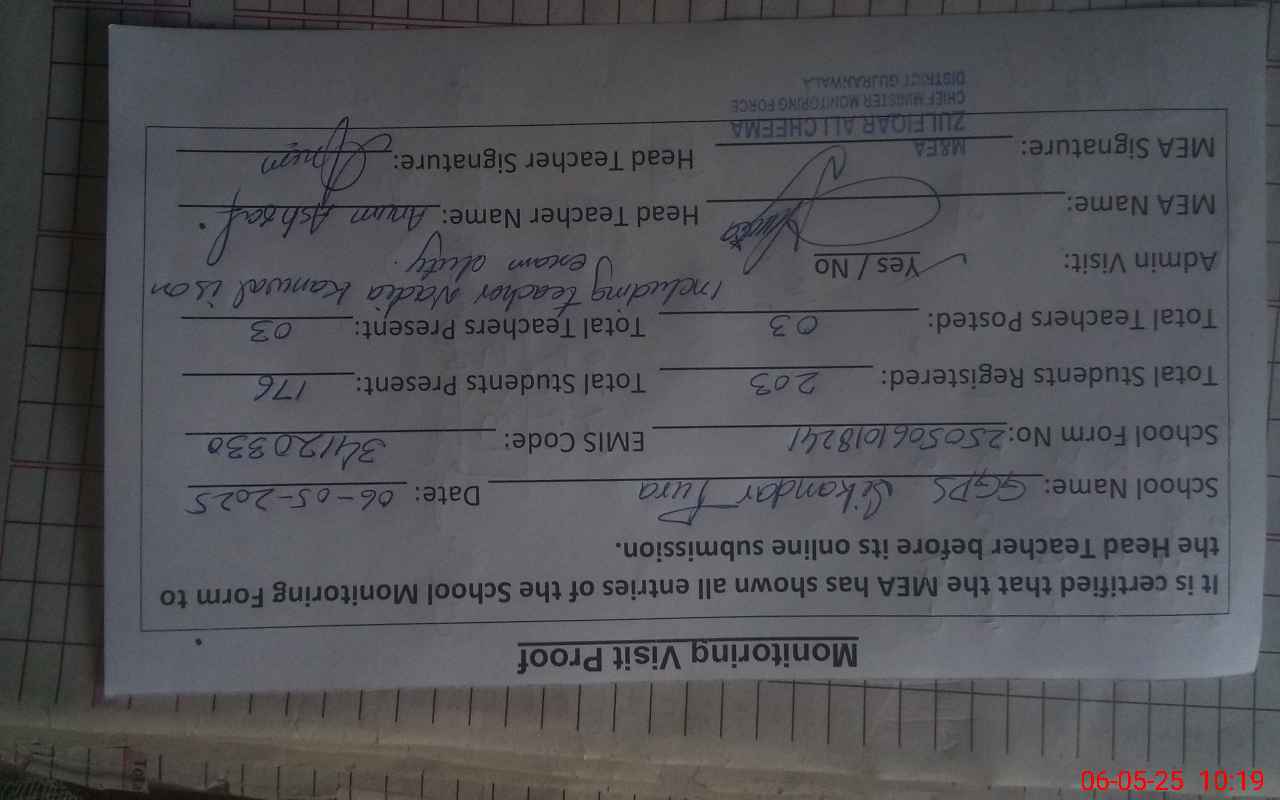 Monitoring Visit Proof
It is certified that the MEA has shown all entries of the School Monitoring Form to
the Head Teacher before its online submission.
School Name: GGPS Sikandar Pura Date: 06-05-2025
School Form No: 2505061018241 EMIS Code: 34120330
Total Students Registered: 203 Total Students Present: 176
Total Teachers Posted: 03 Total Teachers Present: 03
Including teacher Nadia Kanwal is on
exam duty.
Admin Visit: Yes / No
MEA Name: Head Teacher Name: Anum Ashraf
MEA Signature: Head Teacher Signature: Anum
M&EA
ZULFIQAR ALI CHEEMA
CHIEF MINISTER MONITORING FORCE
DISTRICT GUJRANWALA
06-05-25 10:19